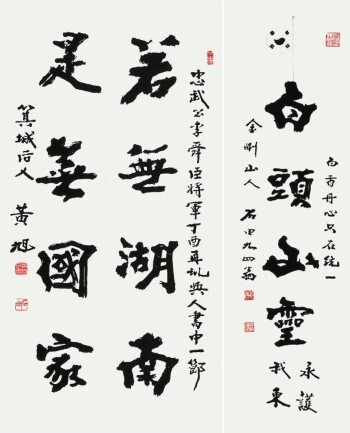 白首丹心只在統一
白頭山靈
永護
我東
金剛山人 石田九四翁
忠武公李舜臣將軍丁酉再亂與人書中一節
若無湖南
是無國家
箕城后人 黃旭